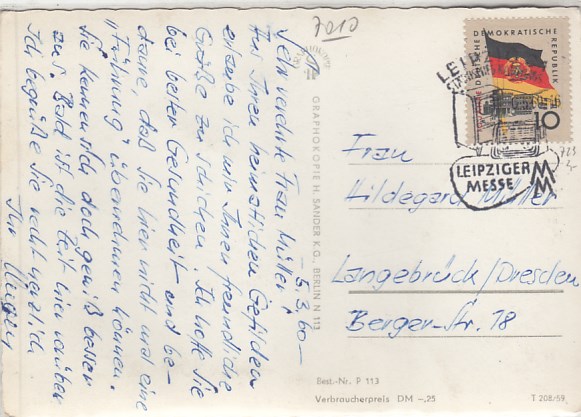 7010
5.3.60
Sehr verehrte Frau Müller!
Aus Ihren heimatlichen Gefilden
erlaube ich mir Ihnen freundliche
Grüße zu schicken. Ich hoffe Sie
bei bester Gesundheit und be-
daure, daß Sie hier nicht mal eine
"Führung" übernehmen können.
Sie kennen sich doch gewiß besser
aus. Bald ist die Zeit hier vorüber
Ich begrüße Sie recht herzlich
Ihr
GRAPHOKOPIE H. SANDER K.G., BERLIN N 113
DEUTSCHE DEMOKRATISCHE REPUBLIK
10
LEIPZIG
LEIPZIGER
MESSE
Frau
Hildegard Müller
Langebrück/Dresden
Berger-Str. 18
Best.-Nr. P 113
Verbraucherpreis DM -,25
T 208/59